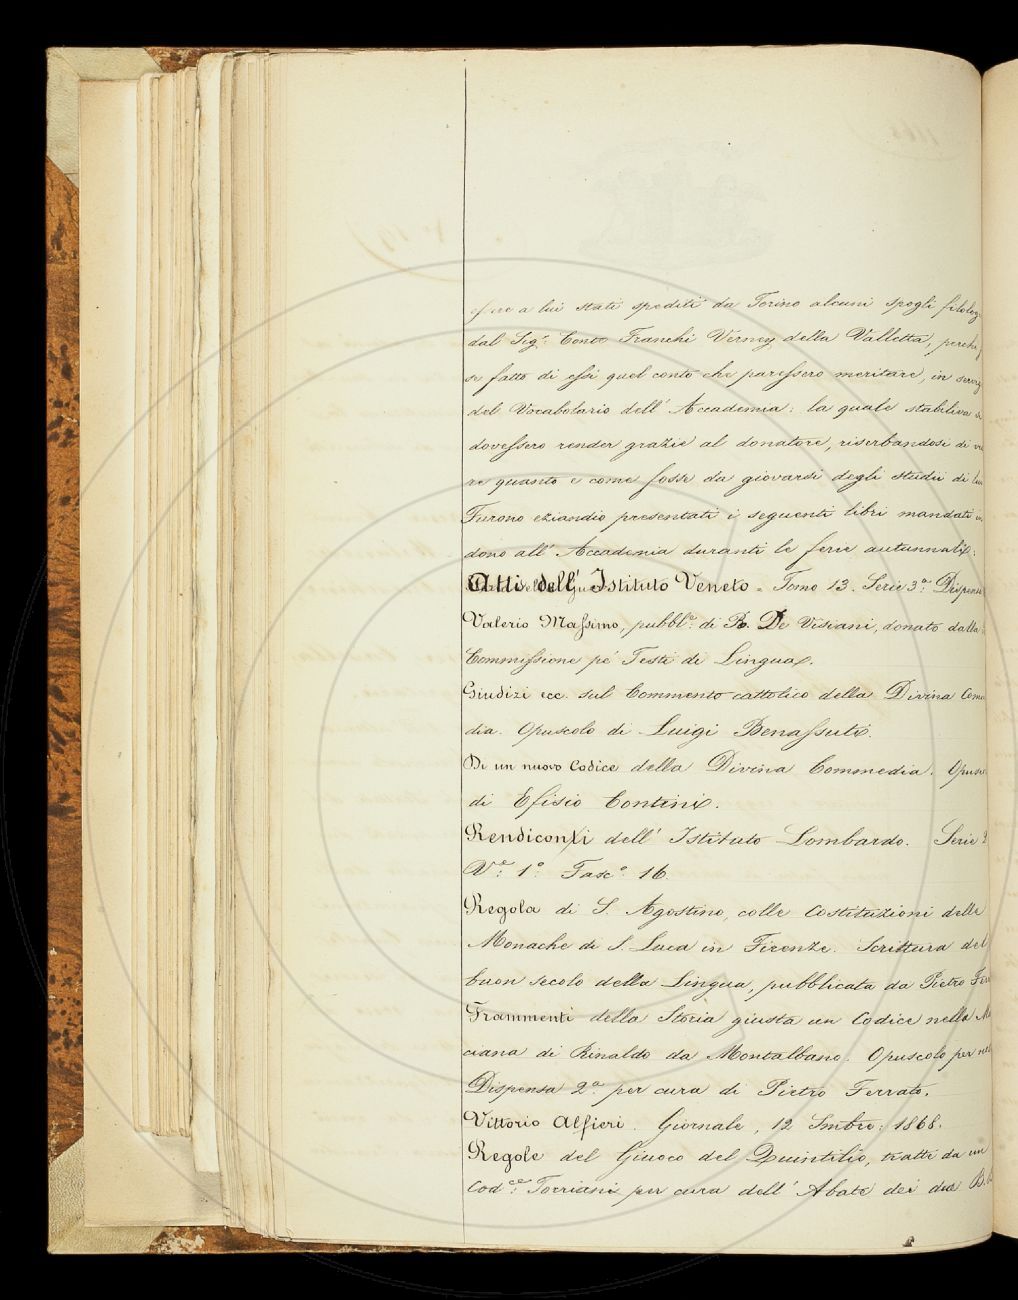 essere a lui stati spediti da Torino alcuni spogli filolog
dal Sigr. Conte Franchi Verney della Valletta, perchè
se fatto di essi quel conto che paressero meritare, in servig
del Vocabolario dell' Accademia: la quale stabiliva
dovessero render grazie al donatore, riserbandosi di
re quanto e come fosse da giovarsi degli studii di
Furono eziandio presentati i seguenti libri mandati in
dono all' Accademia duranti le ferie autunnali:
Atti dell' Istituto Veneto = Tomo 13. Serie 3a. Dispensa
Valerio Massimo, pubblo. di R. De Visiani, donato dalla
Commissione pe' Testi di Lingua.
Giudizi ecc. sul Commento cattolico della Divina Come
dia. Opuscolo di Luigi Benassuti.
Di un nuovo Codice della Divina Commedia. Opusc
di Efisio Contini.
Rendiconti dell' Istituto Lombardo. Serie 2
Ve. 1o. Fasco. 16.
Regola di S. Agostino, colle Costituzioni delle
Monache di S. Luca in Firenze. Scrittura del
buon secolo della Lingua, pubblicata da Pietro Fer
Frammenti della Storia giusta un Codice nella Ma
ciana di Rinaldo da Montalbano. Opuscolo per
Dispensa 2a. per cura di Pietro Ferrato.
Vittorio Alfieri. Giornale, 12 Smbre: 1868.
Regole del Giuoco del Quintilio, tratte da un
Codce: Torriani per cura dell' Abate dei due B.